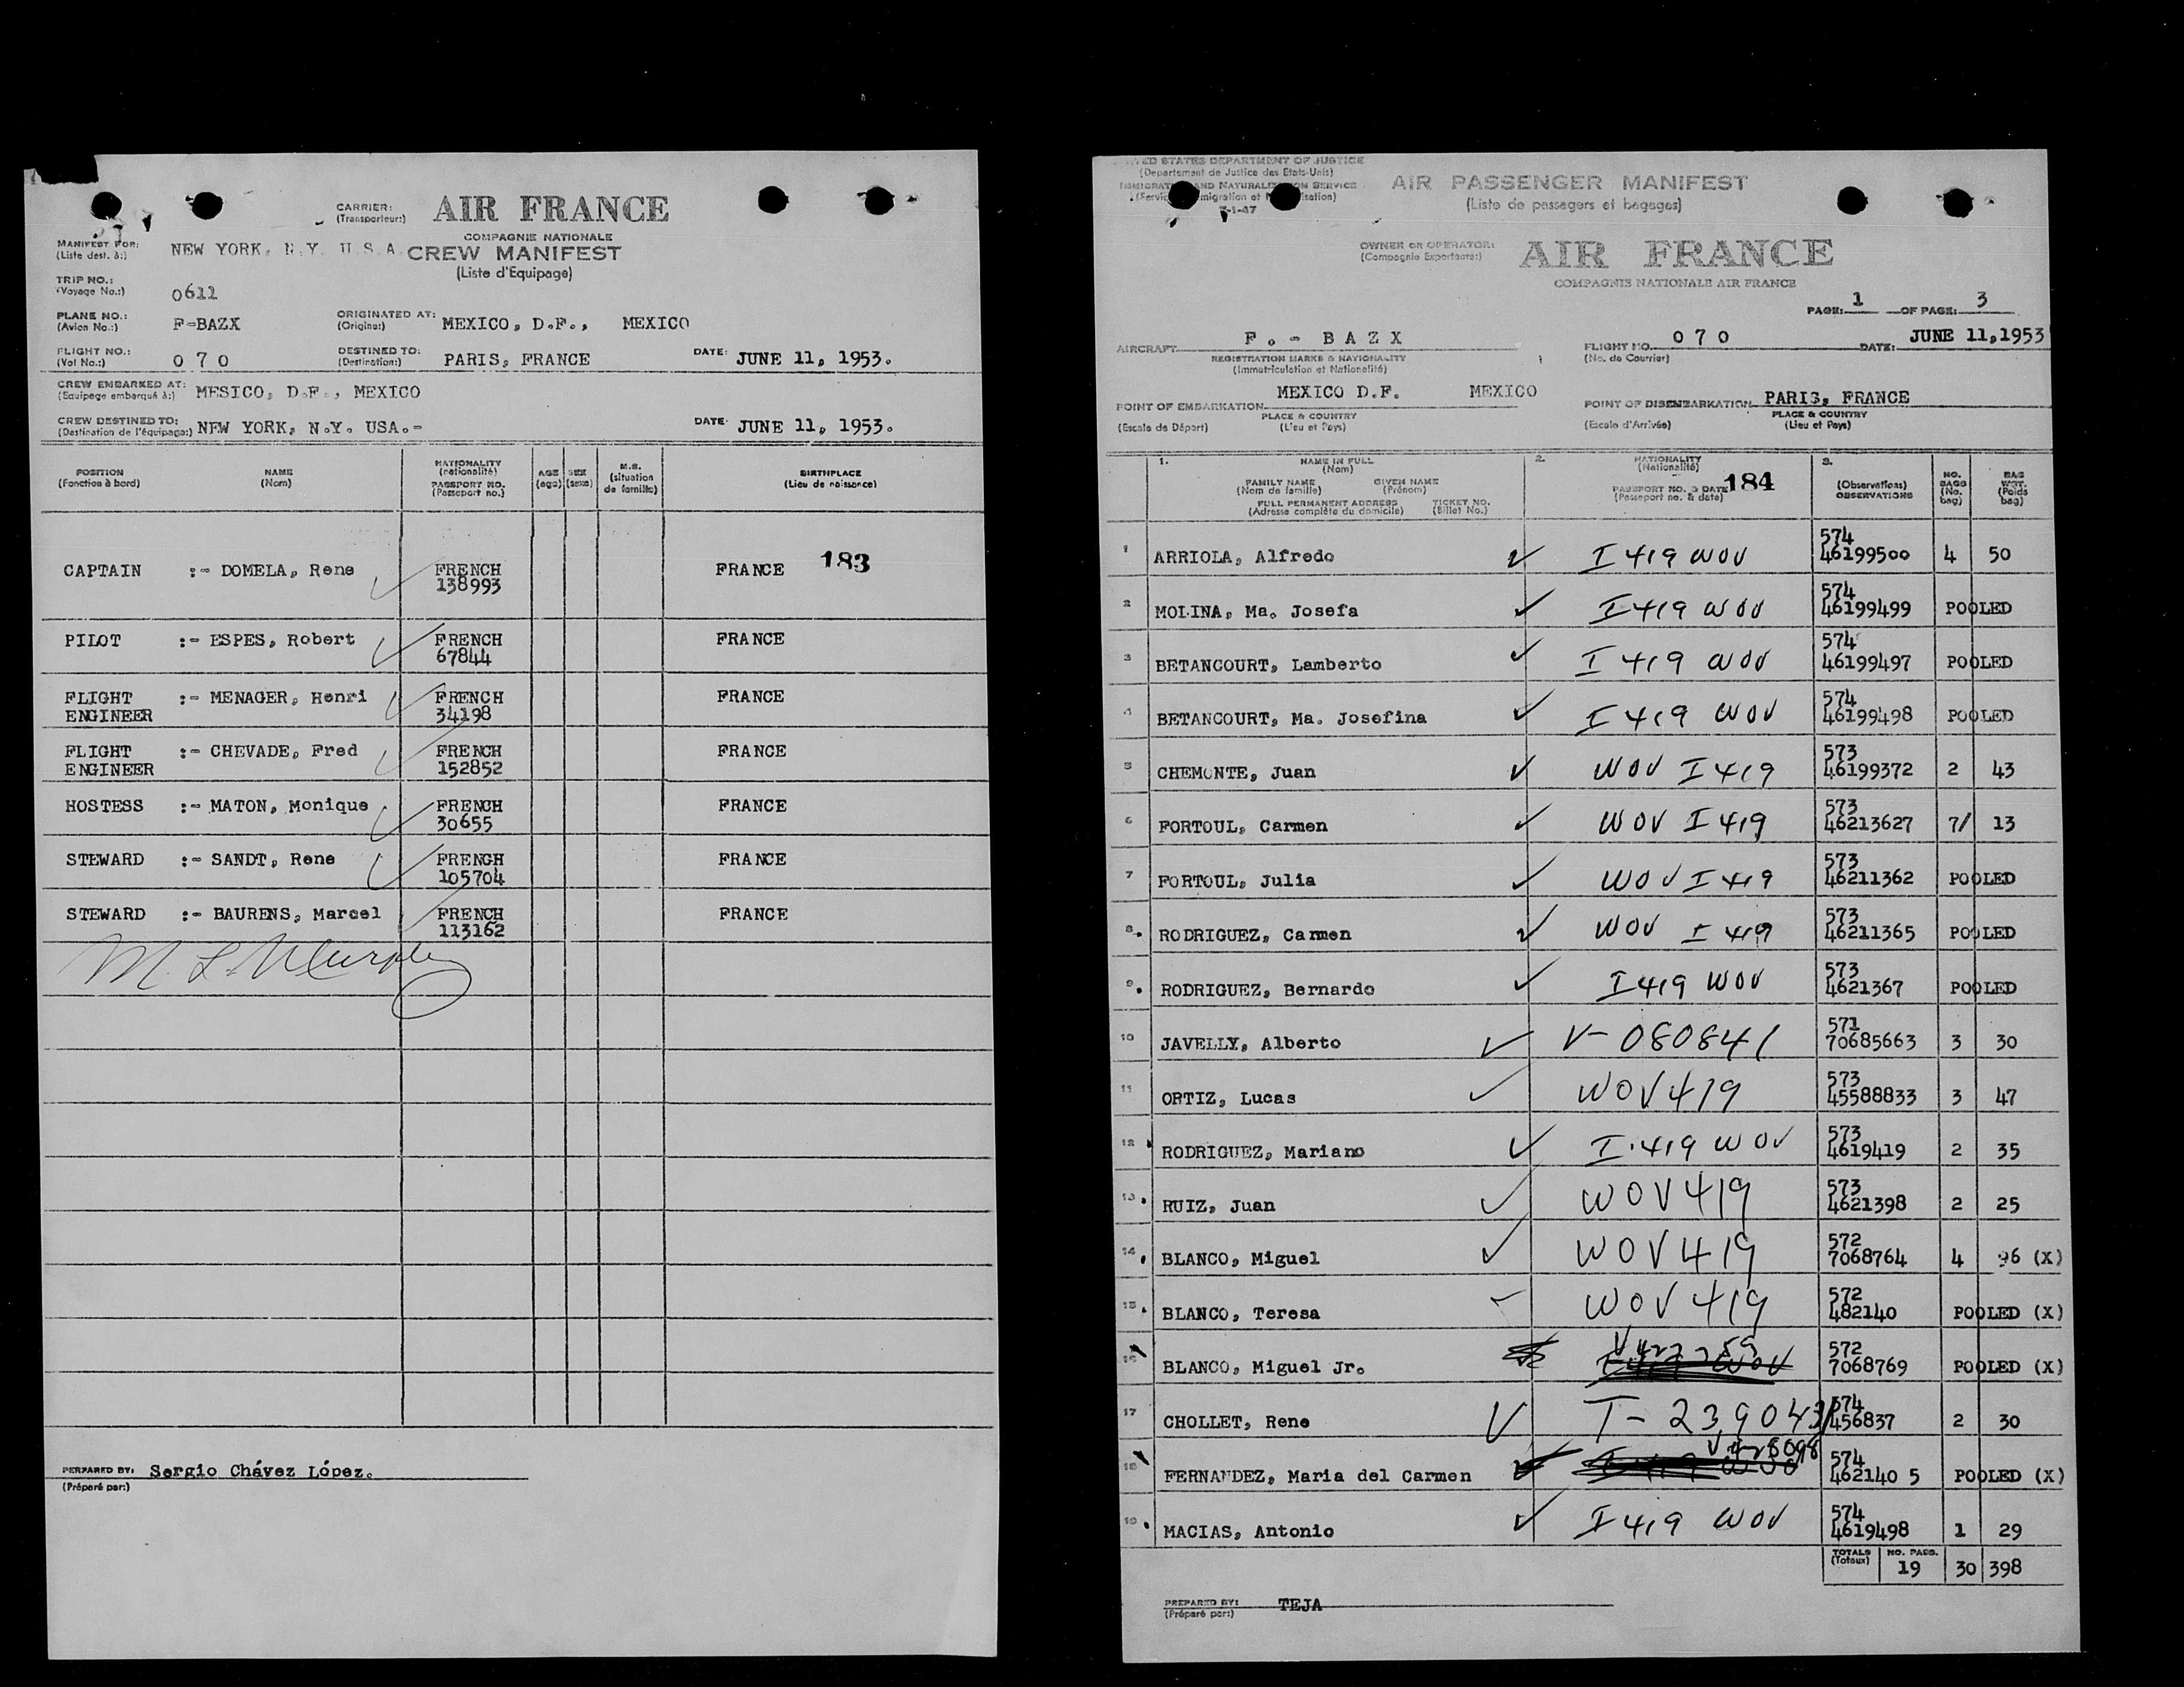 CARRIER:
(Transporteur:)
AIR FRANCE
COMPAGNIE NATIONALE
MANIFEST FOR:
(Liste dest. à:)
NEW YORK, N.Y. U.S.A.
CREW MANIFEST
(Liste d'Equipage)
TRIP NO.:
(Voyage No.:)
0611
PLANE NO.:
(Avion No.:)
F-BAZX
ORIGINATED AT:
(Origine:)
MEXICO, D.F., MEXICO
FLIGHT NO.:
(Vol No.:)
0 7 0
DESTINED TO:
(Destination:)
PARIS, FRANCE
DATE: JUNE 11, 1953.
CREW EMBARKED AT:
(Equipage embarqué à:)
MESICO, D.F., MEXICO
CREW DESTINED TO:
(Destination de l'équipage:)
NEW YORK, N.Y. USA.-
DATE: JUNE 11, 1953.
POSITION
(Fonction à bord)
NAME
(Nom)
NATIONALITY
(nationalité)
PASSPORT NO.
(Passeport no.)
AGE
(age)
SEX
(sexe)
M.S.
(situation
de famille)
BIRTHPLACE
(Lieu de naissance)
183
CAPTAIN :- DOMELA, Rene FRENCH FRANCE
138993
PILOT :- ESPES, Robert FRENCH FRANCE
67844
FLIGHT :- MENAGER, Henri FRENCH FRANCE
ENGINEER 34198
FLIGHT :- CHEVADE, Fred FRENCH FRANCE
ENGINEER 152852
HOSTESS :- MATON, Monique FRENCH FRANCE
30655
STEWARD :- SANDT, Rene FRENGH FRANCE
105704
STEWARD :- BAURENS, Marcel FRENCH FRANCE
113162
M. L. Murphy
PERPARED BY: Sergio Chávez López.
(Préparé par:)
UNITED STATES DEPARTMENT OF JUSTICE
(Departement de Justice des Etats-Unis)
IMMIGRATION AND NATURALIZATION SERVICE
7-1-47
AIR PASSENGER MANIFEST
(Liste de passagers et bagages)
OWNER OR OPERATOR:
(Compagnie Exportears:)
AIR FRANCE
COMPAGNIE NATIONALE AIR FRANCE
PAGE: 1 OF PAGE: 3
AIRCRAFT F.- B A Z X
REGISTRATION MARKS & NATIONALITY
(Immatriculation et Nationalité)
FLIGHT NO. 0 7 0
(No. de Courrier)
DATE: JUNE 11,1953
POINT OF EMBARKATION MEXICO D.F. MEXICO
PLACE & COUNTRY
(Escale de Départ) (Lieu et Pays)
POINT OF DISEMBARKATION PARIS, FRANCE
PLACE & COUNTRY
(Escale d'Arrivée) (Lieu et Pays)
1. NAME IN FULL
(Nom)
FAMILY NAME GIVEN NAME
(Nom de famille) (Prénom)
FULL PERMANENT ADDRESS TICKET NO.
(Adresse complète du domicile) (Billet No.)
2. NATIONALITY
(Nationalité)
PASSPORT NO. & DATE
(Passeport no. & date)
184
3.
(Observations)
OBSERVATIONS
NO.
BAGS
(No.
bag)
BAG
WGT.
(Poids
bag)
1 ARRIOLA, Alfredo I 419 WOV 574 46199500 4 50
2 MOLINA, Ma. Josefa I-419 WOV 574 46199499 POOLED
3 BETANCOURT, Lamberto I 419 WOV 574 46199497 POOLED
4 BETANCOURT, Ma. Josefina I 419 WOV 574 46199498 POOLED
5 CHEMONTE, Juan WOV I 419 573 46199372 2 43
6 FORTOUL, Carmen WOV I 419 573 46213627 7/ 13
7 FORTOUL, Julia WOV I 419 573 46211362 POOLED
8. RODRIGUEZ, Carmen WOV I 419 573 46211365 POOLED
9. RODRIGUEZ, Bernardo I 419 WOV 573 4621367 POOLED
10 JAVELLY, Alberto V-080841 571 70685663 3 30
11 ORTIZ, Lucas WOV 419 573 45588833 3 47
12 RODRIGUEZ, Mariano I.419 WOV 573 4619419 2 35
13. RUIZ, Juan WOV 419 573 4621398 2 25
14. BLANCO, Miguel WOV 419 572 7068764 4 96 (X)
15. BLANCO, Teresa WOV 419 572 482140 POOLED (X)
16 BLANCO, Miguel Jr. 572 7068769 POOLED (X)
17 CHOLLET, Rene T-239043 574 456837 2 30
18 FERNANDEZ, Maria del Carmen 574 462140 5 POOLED (X)
19. MACIAS, Antonio I-419 WOV 574 4619498 1 29
TOTALS
(Totaux)
NO. PASS.
19 30 398
PREPARED BY: TEJA
(Préparé par:)